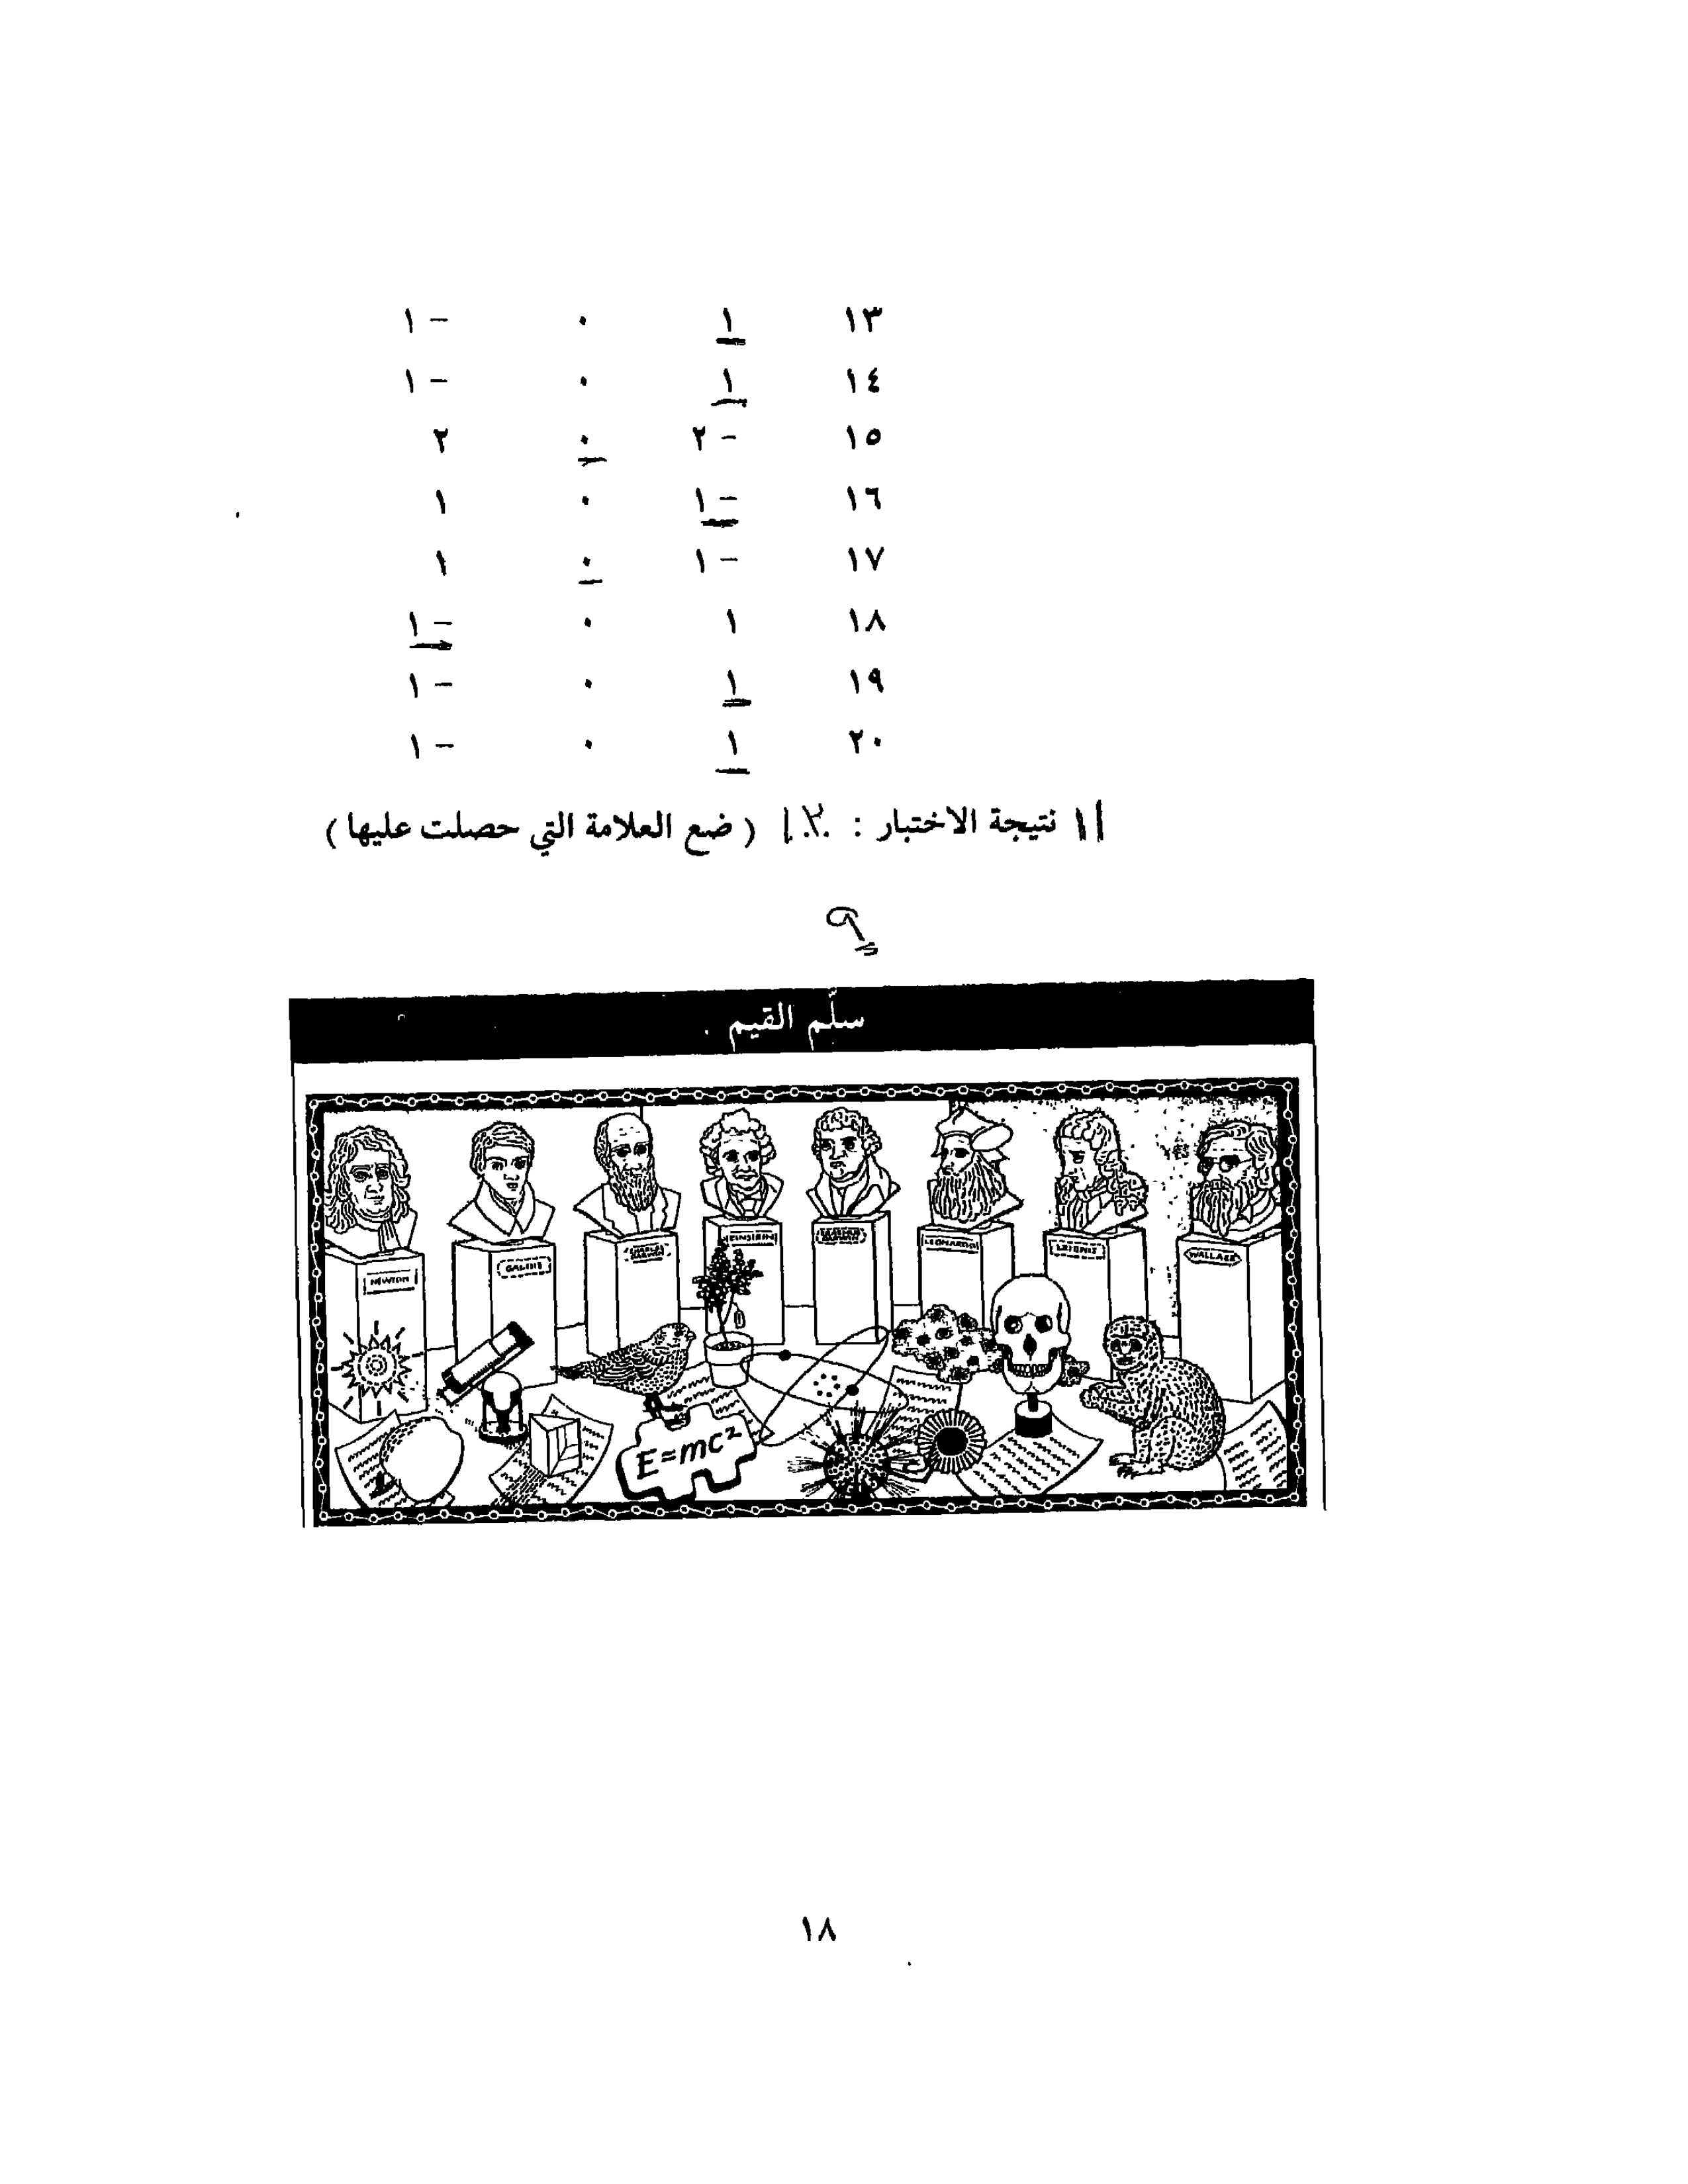 ١٣ ١ ٠ -١
١٤ ١ ٠ -١
١٥ -٢ ٠ ٢
١٦ -١ ٠ ١
١٧ -١ ٠ ١
١٨ ١ ٠ -١
١٩ ١ ٠ -١
٢٠ ١ ٠ -١
نتيجة الاختبار : ( ضع العلامة التي حصلت عليها )
سلّم القيم .
NEWTON
CHARLES DARWIN
EINSTEIN
LEONARDO
LEIBNIZ
WALLACE
E=mc²
١٨